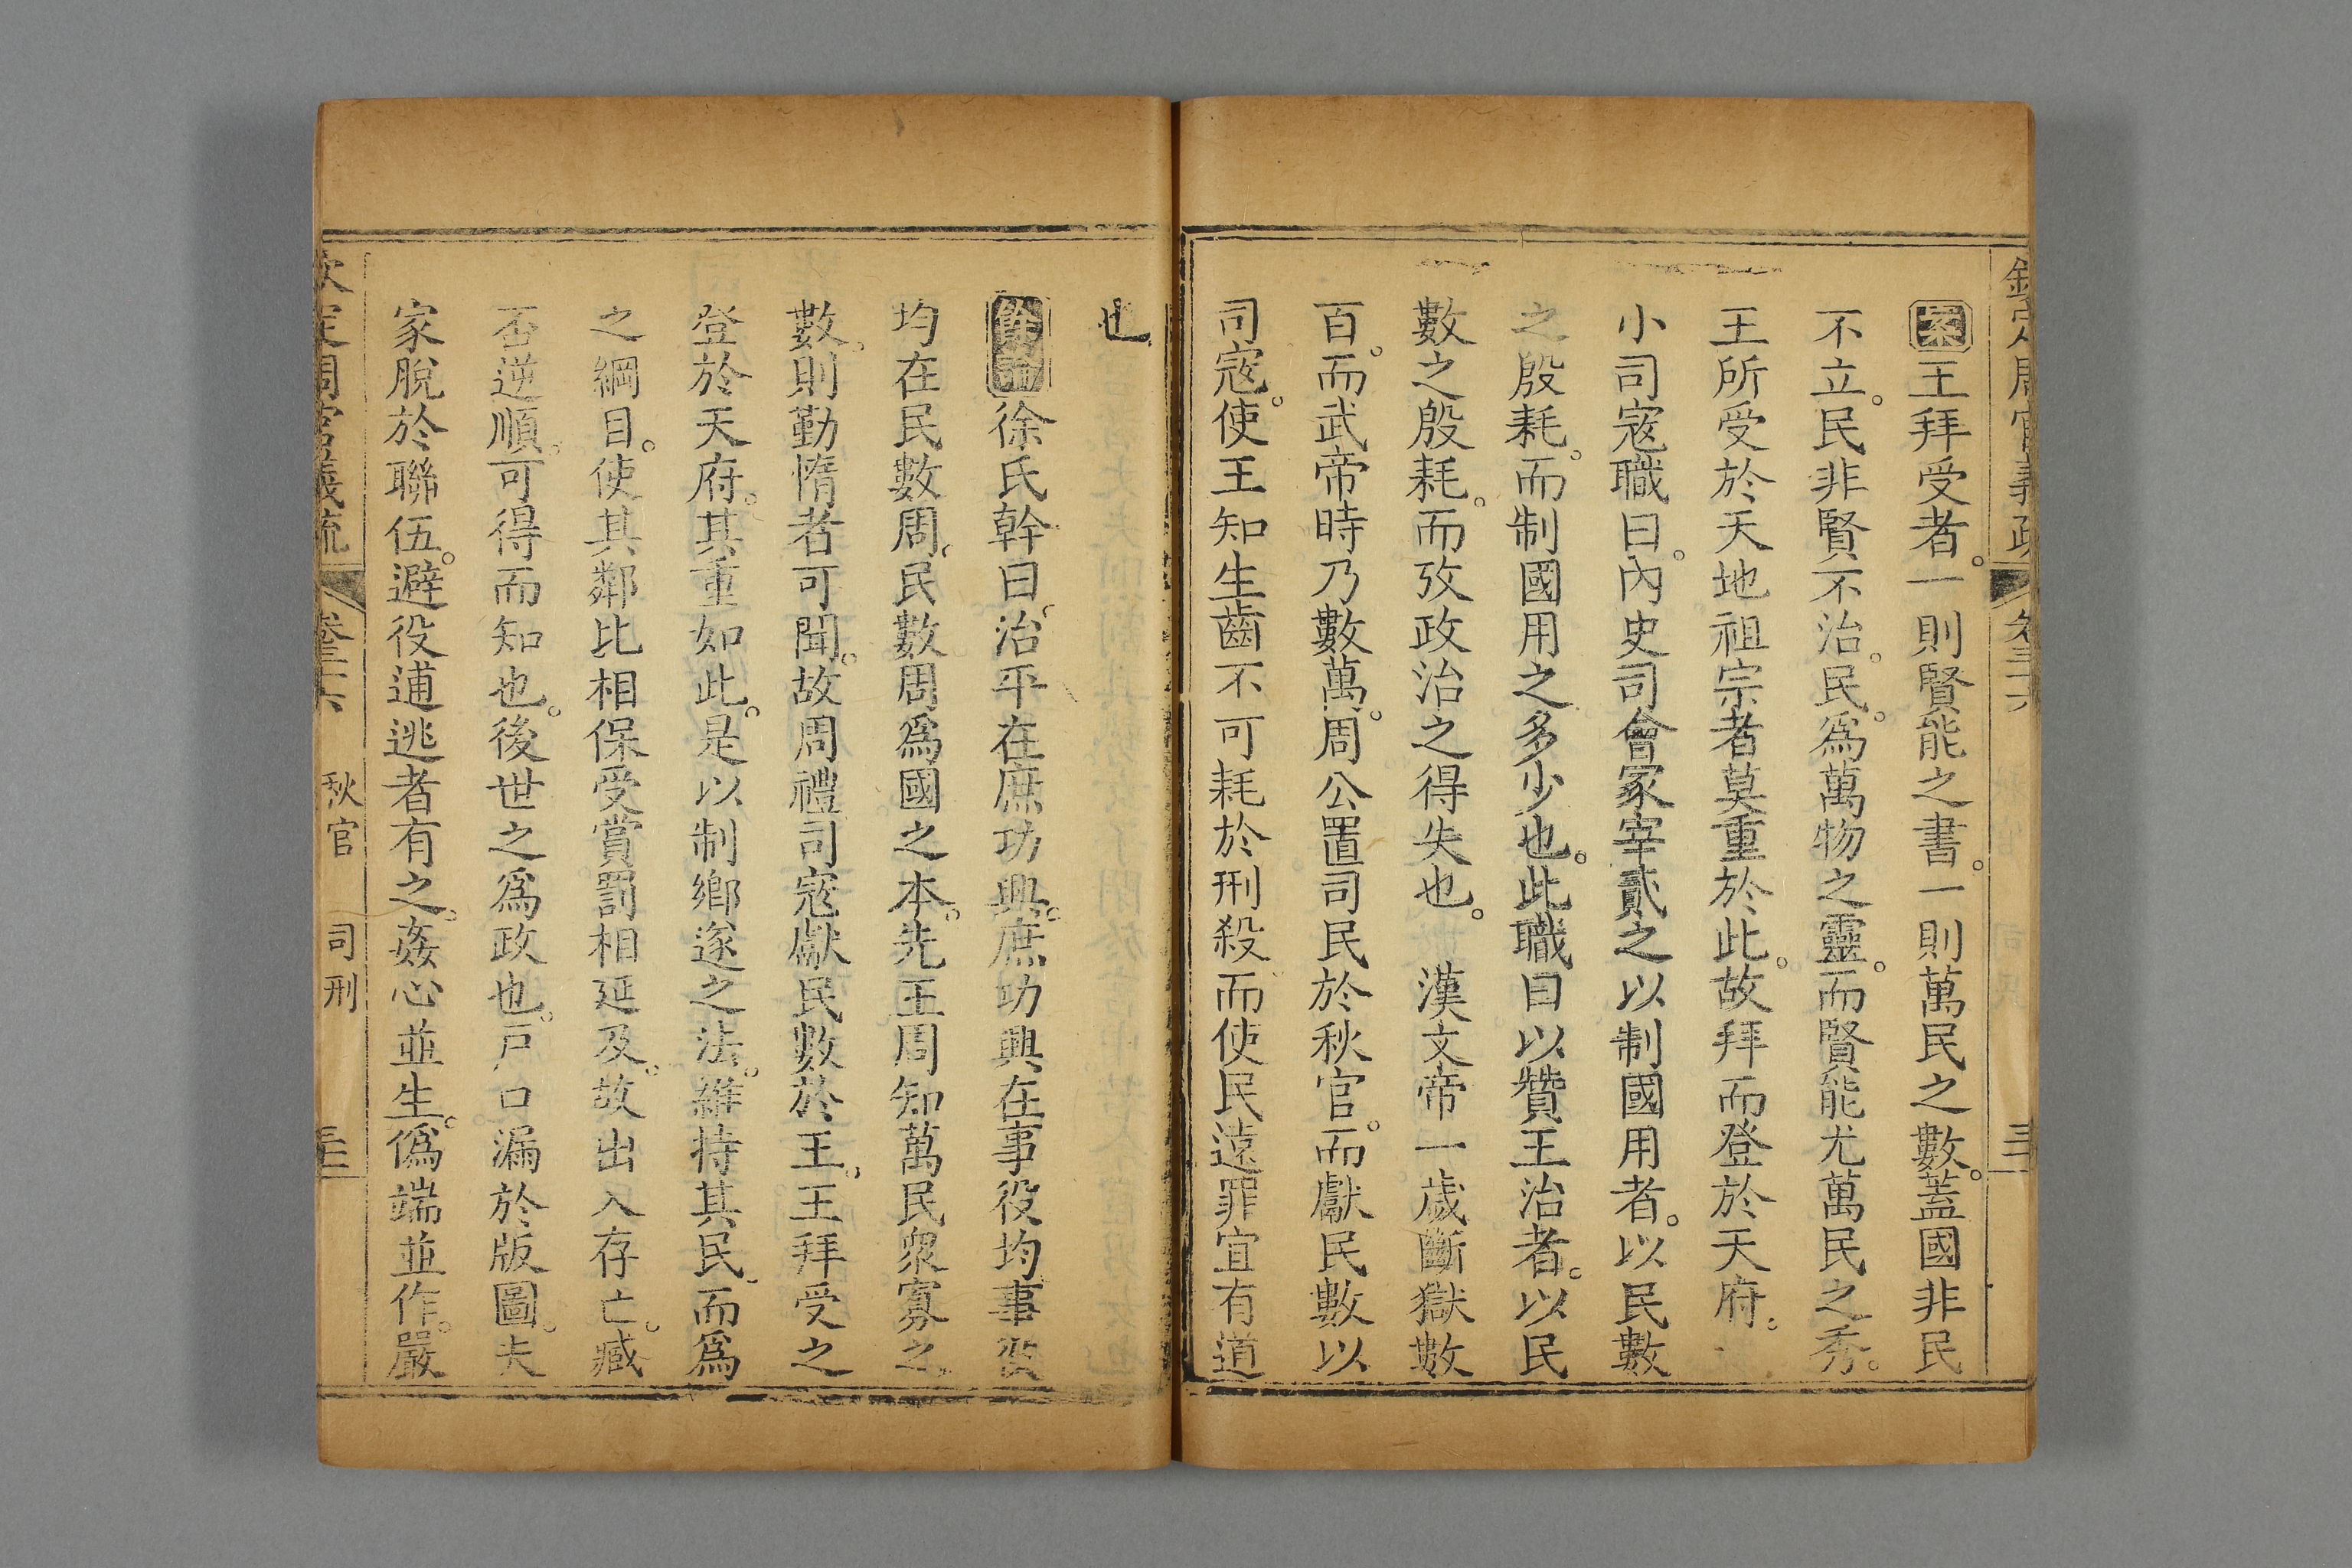 欽定周官義疏 卷三十六 三
案王拜受者。一則賢能之書。一則萬民之數。蓋國非民
不立。民非賢不治。民。爲萬物之靈。而賢能尤萬民之秀。
王所受於天地祖宗者莫重於此。故拜而登於天府。
小司寇職曰。內史司會冢宰貳之以制國用者。以民數
之殷耗。而制國用之多少也。此職曰以贊王治者。以民
數之殷耗。而攷政治之得失也。 漢文帝一歲斷獄數
百。而武帝時乃數萬。周公置司民於秋官。而獻民數以
司寇。使王知生齒不可耗於刑殺而使民遠罪宜有道
也
餘論徐氏幹曰治平在庶功興。庶功興在事役均事役
均在民數周。民數周爲國之本。先王周知萬民衆寡之
數。則勤惰者可聞。故周禮司寇獻民數於王。王拜受之
登於天府。其重如此。是以制鄉遂之法。維持其民。而爲
之綱目。使其鄰比相保受賞罰相延及。故出入存亡。臧
否逆順。可得而知也。後世之爲政也。戸口漏於版圖。夫
家脫於聯伍。避役逋逃者有之。姦心並生。僞端並作。嚴
欽定周官義疏 卷三十六 秋官 司刑 三